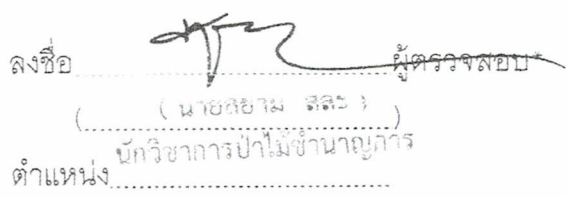 ลงชื่อ ผู้ตรวจสอบ*
( นายสยาม สละ )
ตำแหน่ง นักวิชาการป่าไม้ชำนาญการ